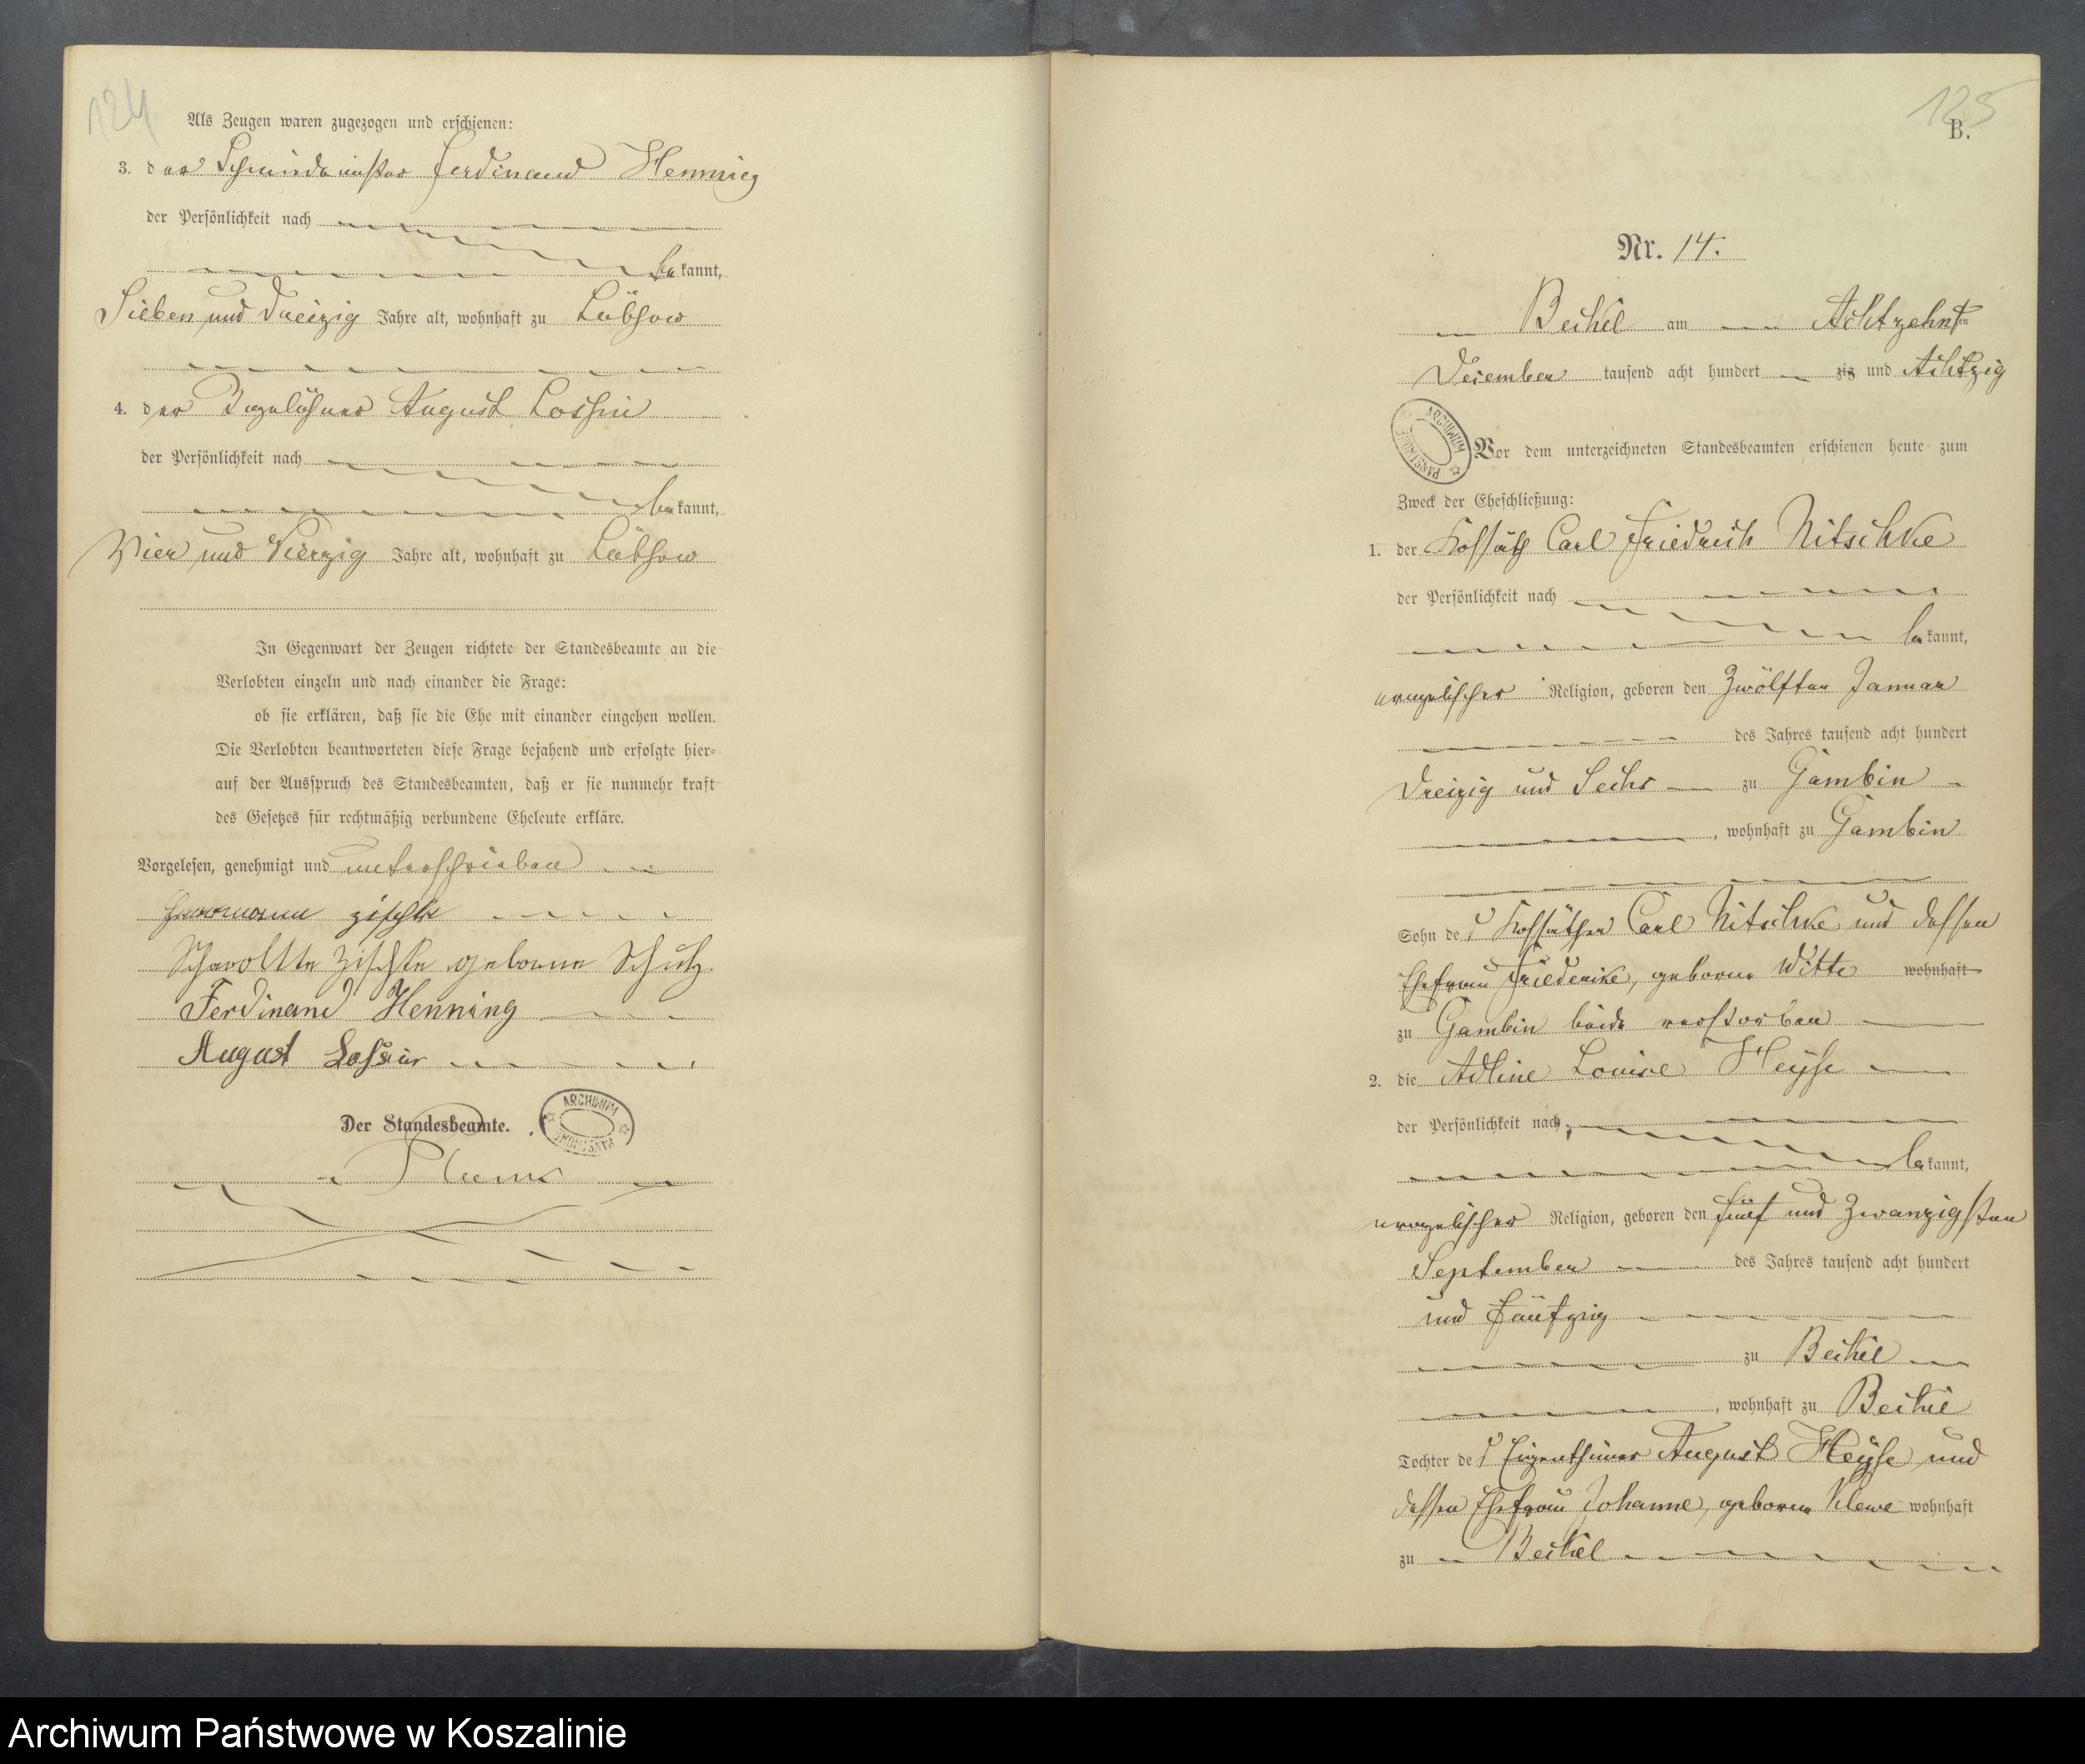 124
Als Zeugen waren zugezogen und erschienen:
3. der Schmiedemeister Ferdinand Hennnig
der Persönlichkeit nach
bekannt,
Sieben und Dreizig Jahre alt, wohnhaft zu Lübsow
4. der Tagelöhner August Lossin
der Persönlichkeit nach
bekannt,
Vier und Vierzig Jahre alt, wohnhaft zu Lübsow
In Gegenwart der Zeugen richtete der Standesbeamte an die
Verlobten einzeln und nach einander die Frage:
ob sie erklären, daß sie die Ehe mit einander eingehen wollen.
Die Verlobten beantworteten diese Frage bejahend und erfolgte hier-
auf der Ausspruch des Standesbeamten, daß er sie nunmehr kraft
des Gesetzes für rechtmäßig verbundene Eheleute erkläre.
Vorgelesen, genehmigt und unterschrieben
zischke
Scharoltte Zischke geborne Schulz.
Ferdinand Henning
August Lossin
Der Standesbeamte.
ARCHIWUM PAŃSTWOWE
125
B.
Nr. 14.
Beckel am Achtzehnten
Dezember tausend acht hundert zig und Achtzig
ARCHIWUM PAŃSTWOWE
Vor dem unterzeichneten Standesbeamten erschienen heute zum
Zweck der Eheschließung:
1. der Kossäth Carl Friedrich Nitschke
der Persönlichkeit nach
bekannt,
evangelischer Religion, geboren den Zwölften Januar
des Jahres tausend acht hundert
Dreizig und Sechs zu Gambin
, wohnhaft zu Gambin
Sohn des Kossäthen Carl Nitschke und dessen
Ehefrau Friederike, geborne Witte wohnhaft
zu Gambin beide verstorben
2. die Adline Louise Heyse
der Persönlichkeit nach
bekannt,
evangelischer Religion, geboren den fünf und Zwanzigsten
September des Jahres tausend acht hundert
und Fünfzig
zu Beckel
, wohnhaft zu Beckel
Tochter des Eigenthümer August Heyse und
dessen Ehefrau Johanne, geborne Klewe wohnhaft
zu Beckel
Archiwum Państwowe w Koszalinie